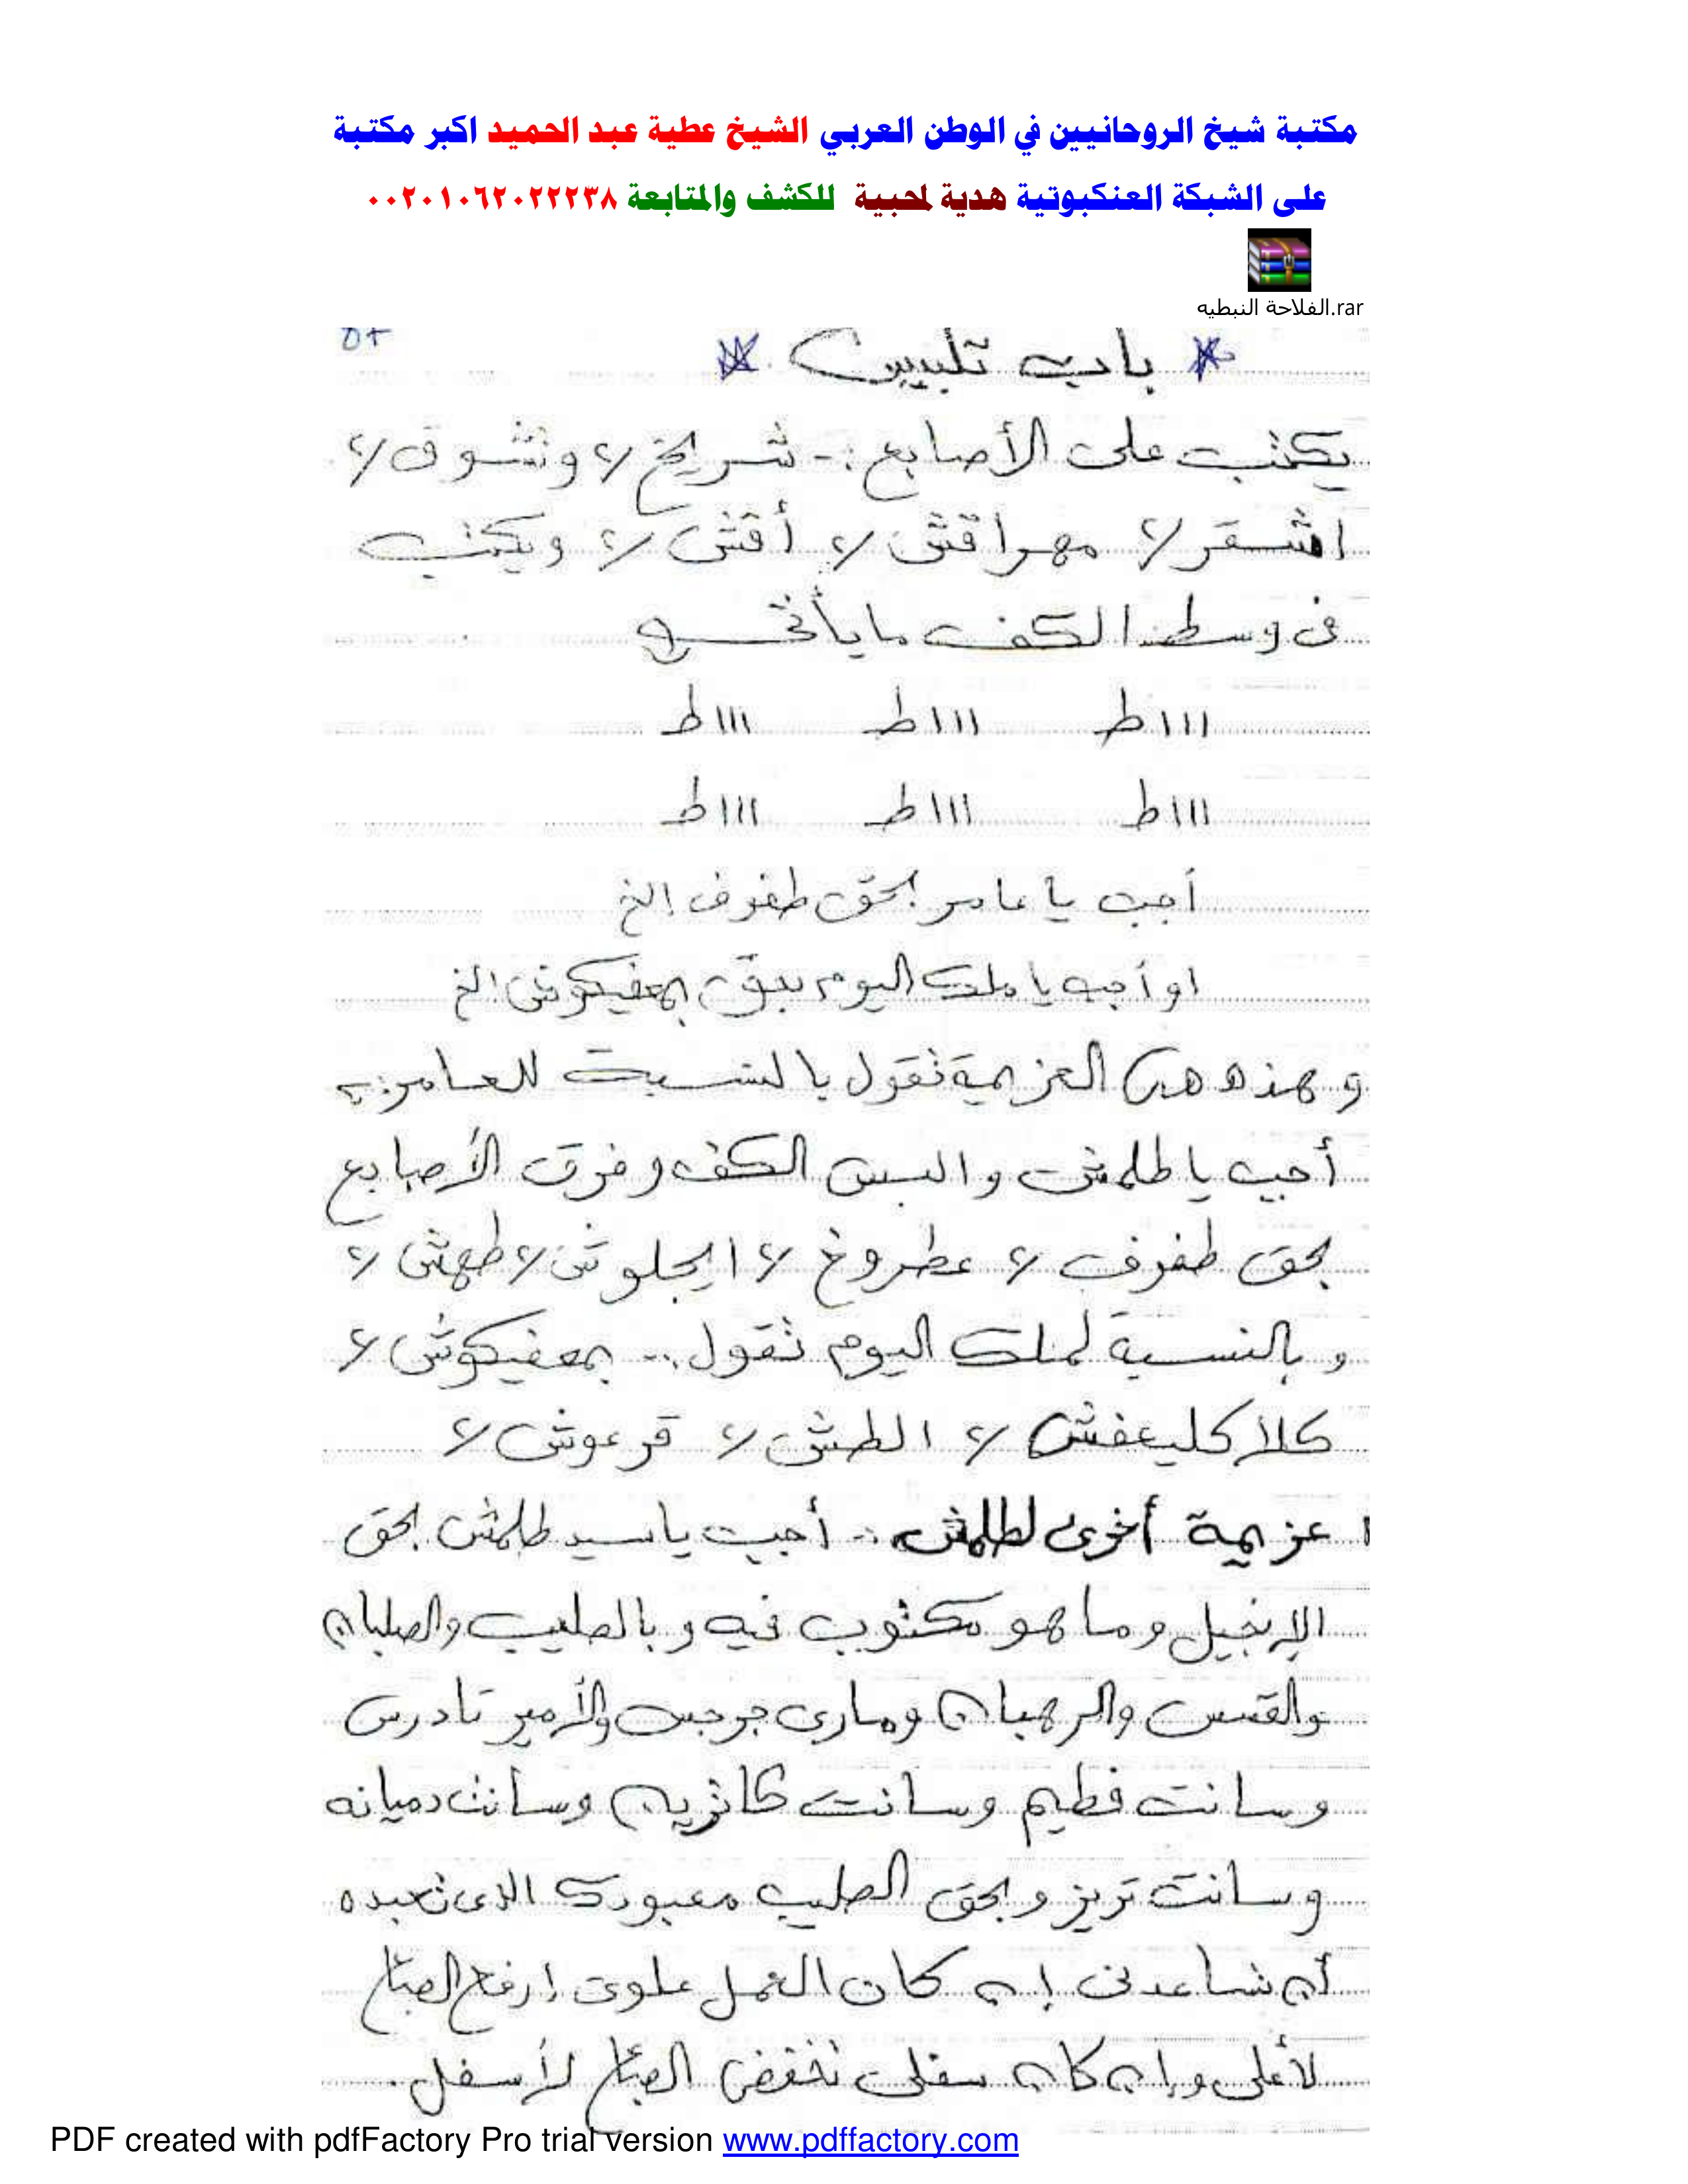 مكتبة شيخ الروحانيين في الوطن العربي الشيخ عطية عبد الحميد اكبر مكتبة
على الشبكة العنكبوتية هدية لمحبية للكشف والمتابعة ٠٠٢٠١٠٦٢٠٢٢٢٣٨
الفلاحة النبطيه.rar
باب تلبيس
يكتب على الأصابع :- شريخ ٢/ وتشوق ٢/
اشقر ٢/ مهراقش ٢/ أقش ٢/ ويكتب
فى وسط الكف ما يأتى
ااا ط ااا ط ااا ط
ااا ط ااا ط ااا ط
أجب يا عامر بحق طفوف إلخ
او أجب يا ملك اليوم بحق بمعفيكوش الخ
وهذه هى العزيمة تقول بالنسبت للعامر :-
أجب يا طلمش والبس الكف وفرق الأصابع
بحق طفوف ٢/ عطروخ ٢/ ايجلوش ٢/ طهش ٢/
وبالنسبة لملك اليوم تقول :- بمعفيكوش ٢/
كلا كليعفش ٢/ الطش ٢/ قرعوش ٢/
عزيمة أخرى لطلمش :- أجب يا سيد طلمش بحق
الإنجيل وما هو مكتوب فيه وبالصليب والصلبان
والقسس والرهبان ومارى جرجس والأمير تادرس
وسانت فطيم وسانت كاترين وسانت دميانه
وسانت تريز وبحق الصليب معبودك الذى تعبده
أن تساعدنى إن كان العمل علوى إرفع الصباع
لأعلى وإن كان سفلى تخفض الصباع لأسفل .
PDF created with pdfFactory Pro trial version www.pdffactory.com